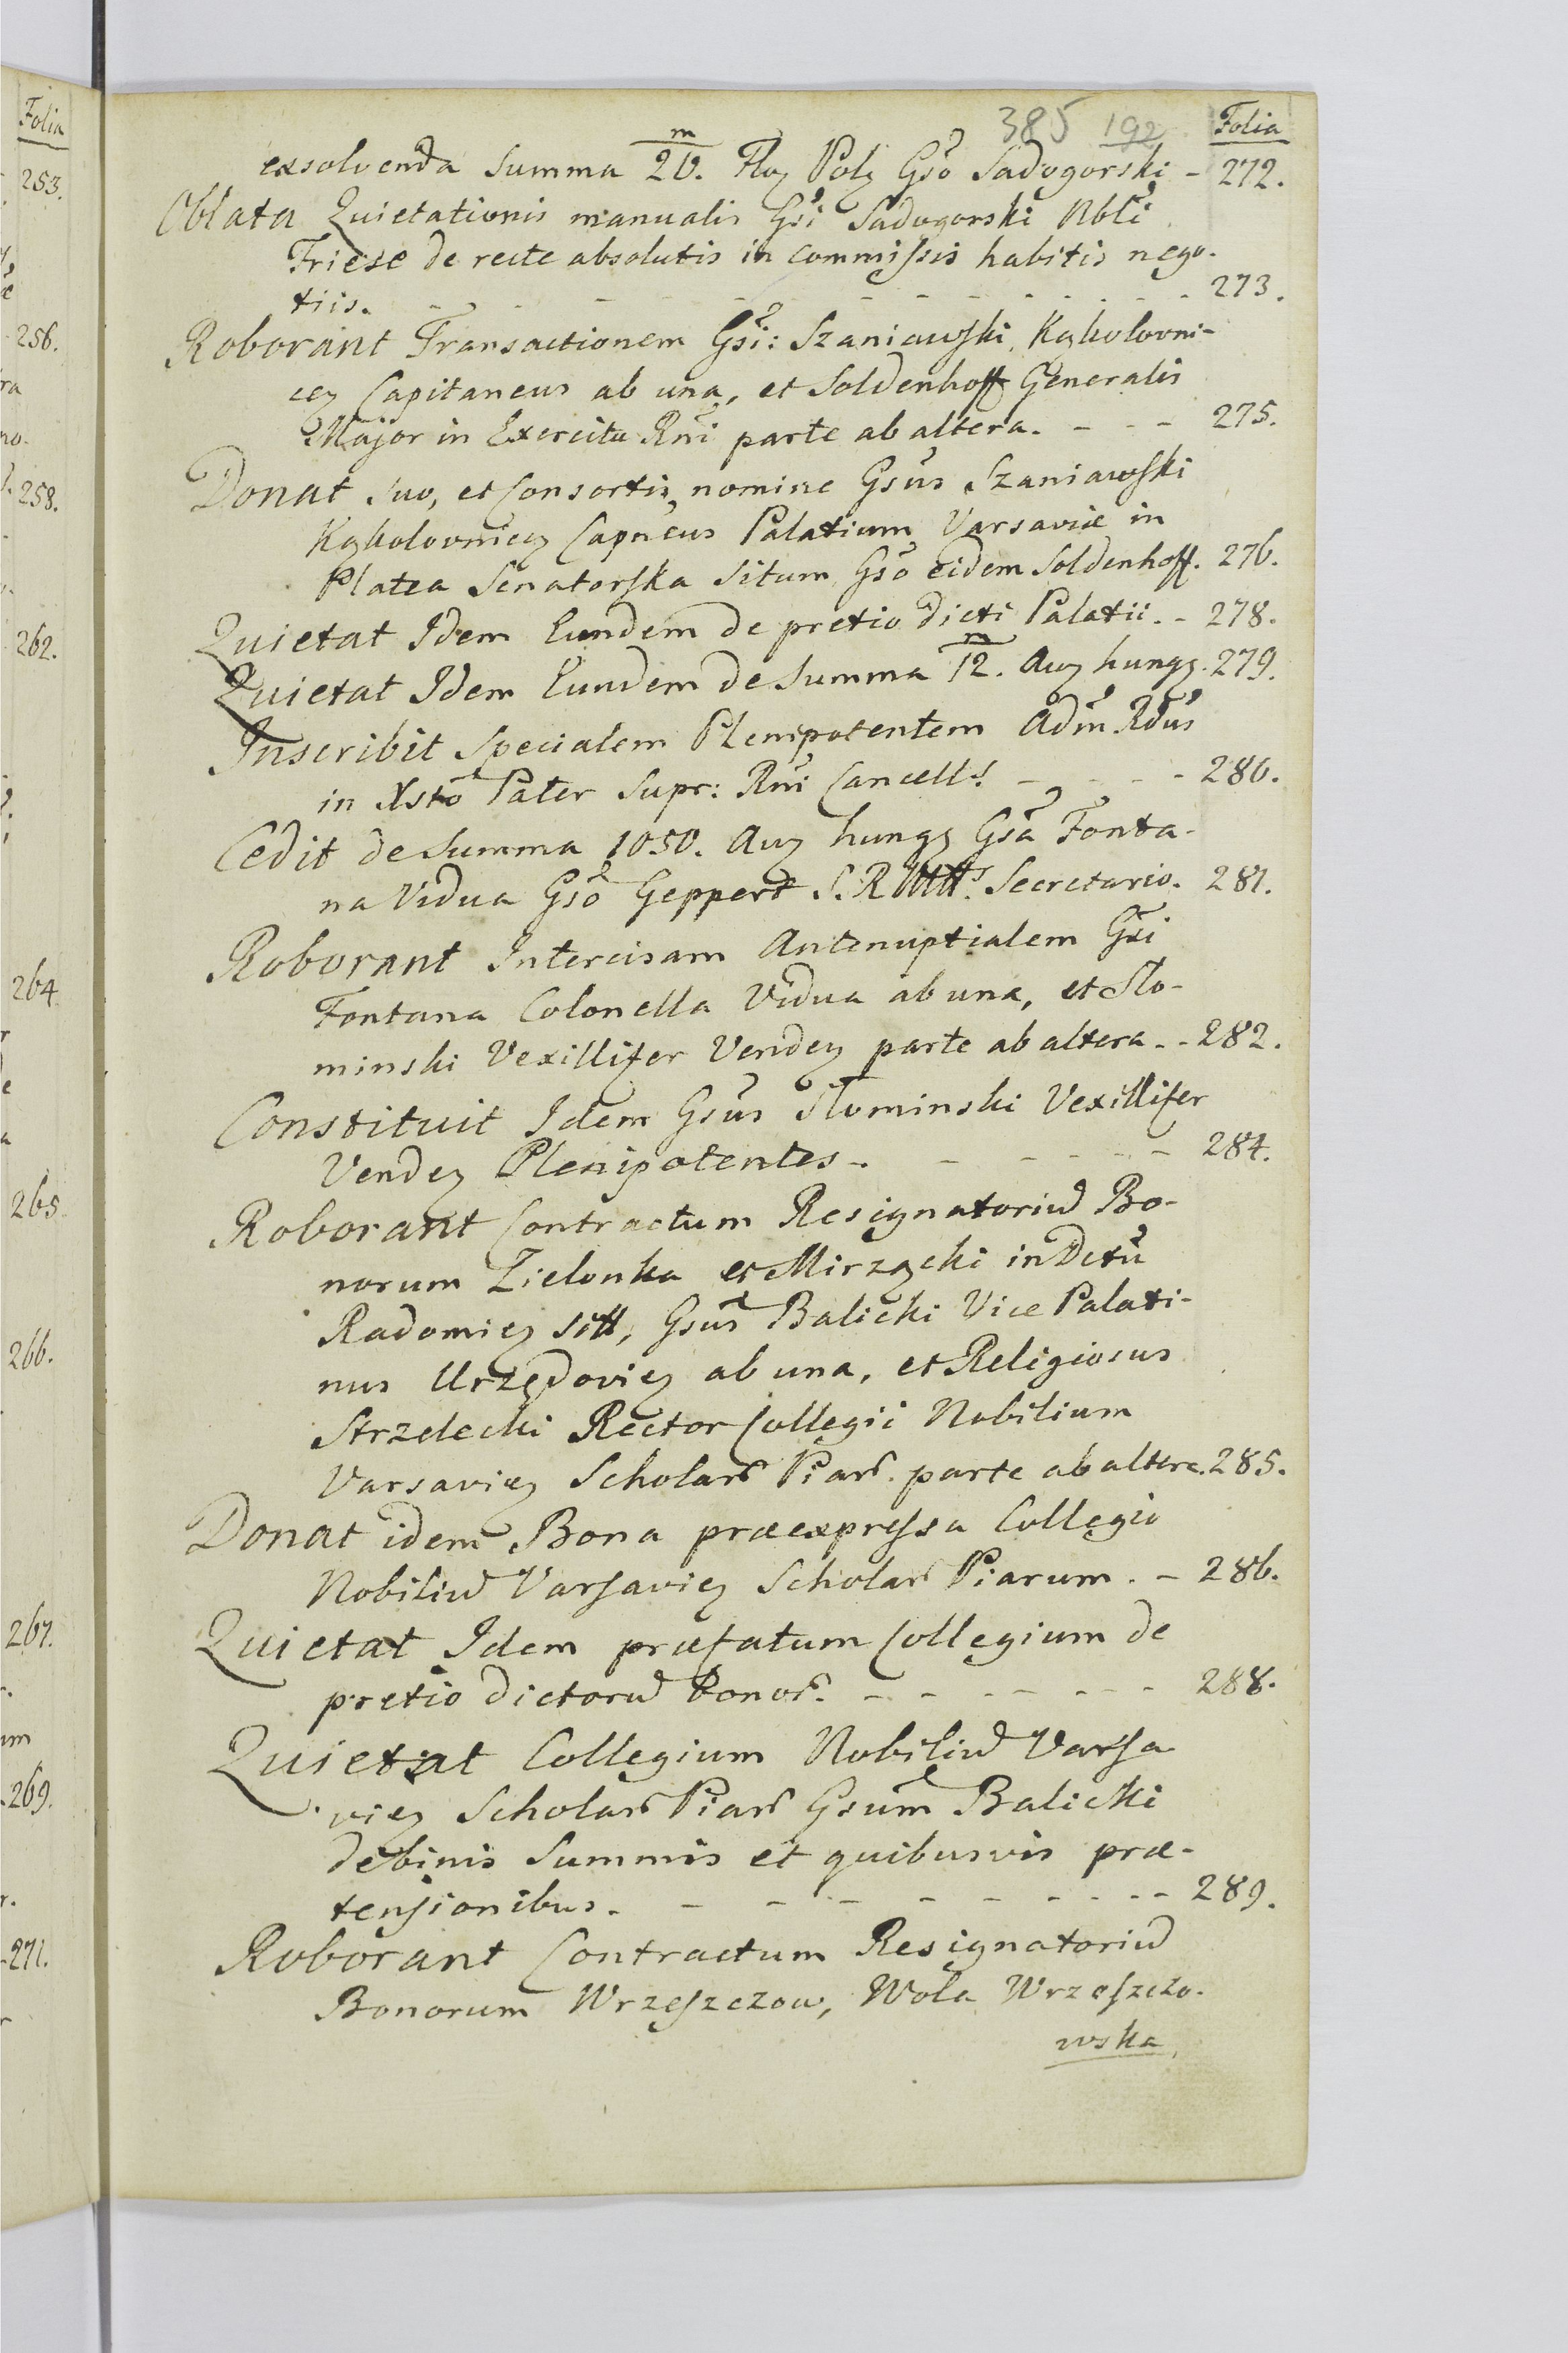 Folia
253.
256.
258.
262.
264
265
266.
267.
269.
271.
385 192 Folia
exsolvenda Summa 20. m Floz Polz Gsō Sadogorski - 272.
Oblata Quietationis manualis Gsi Sadogorski Nbli
Friese de recte absolutis in commissis habitis nego-
tiis. - - - - - - - - 273.
Roborant Transactionem Gsi: Szaniawski Kąkolovni-
cez Capitaneus ab una, et Soldenhoff Generalis
Major in Exercitu Rni parte ab altera. - - - 275.
Donat suo, et Consortis nomine Gsus Szaniawski
Kąkolovniez Capneus Palatium Varsaviæ in
Platea Senatorska Situm Gsō eidem Soldenhoff. 276.
Quietat Idem Eundem de pretio dicti Palatii. - 278.
Quietat Idem Eundem de Summa 12. m Auz hungz. 279.
Inscribit Specialem Plenipotentem Adm Rdus
in Xsto Pater Supr: Rni Cancell. - - - - 280.
Cedit de Summa 1050. Auz hungz Gsa Fonta-
na Vidua Gsō Geppert S. R. Mtts. Secretario. 281.
Roborant Intercisam Antenuptialem Gsi
Fontana Colonella Vidua ab una, et Slo-
minski Vexillifer Vendez parte ab altera. - - 282.
Constituit Idem Gsus Slominski Vexillifer
Vendez Plenipotentes. - - - - - 284.
Roborant Contractum Resignatoriū Bo-
norum Zielonka et Mirzączki in Dctu
Radomiez sitt, Gsus Balicki Vice Palati-
nus Urzędoviez ab una, et Religiosus
Strzelecki Rector Collegii Nobilium
Varsaviez Scholar Piar. parte ab altera. 285.
Donat idem Bona præexpressa Collegio
Nobiliū Varsaviez Scholar Piarum. - 286.
Quietat Idem præfatum Collegium de
pretio dictorū bonor. - - - - - - - 288.
Quietat Collegium Nobiliū Varsa
viez Scholar Piar Gsum Balicki
de binis Summis et quibusvis præ-
tensionibus. - - - - - - - - 289.
Roborant Contractum Resignatoriū
Bonorum Wrzeszczow, Wola Wrzeszczo-
wska,